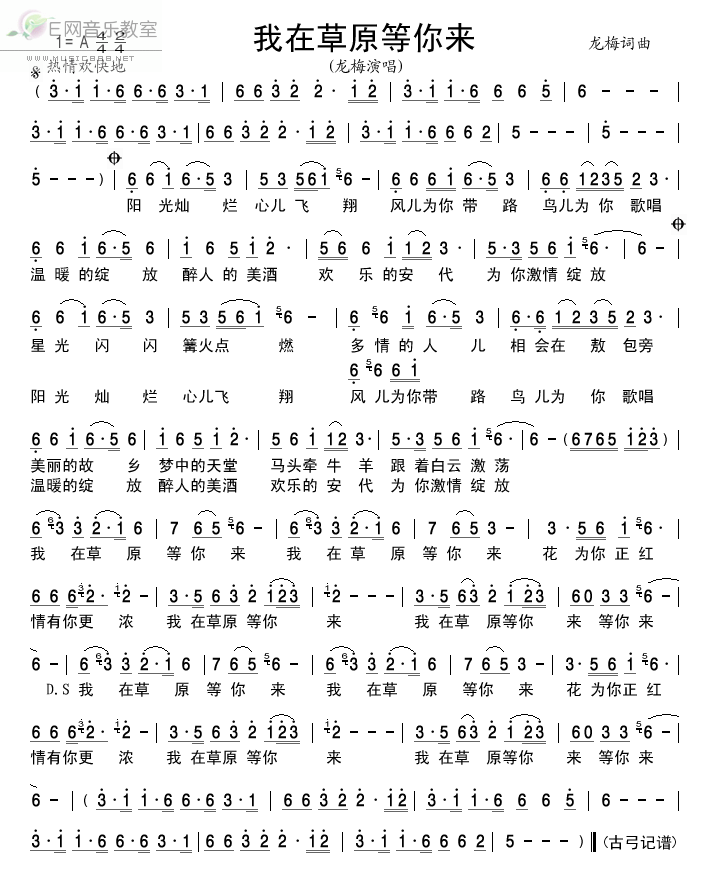 E网音乐教室
WWW.MUSIC888.NET
我在草原等你来
1= A 4/4 2/4
龙梅词曲
热情欢快地
(龙梅演唱)
( 3·1 1·6 6·6 3·1 | 6 6 3 2 2· 1 2 | 3·1 1·6 6 6 5 | 6 - - - |
3·1 1·6 6·6 3·1 | 6 6 3 2 2·1 2 | 3·1 1·6 6 6 2 | 5 - - - | 5 - - - |
5 - - - ) | 6 6 1 6·5 3 | 5 3 5 6 1 6 - | 6 6 6 1 6·5 3 | 6 6 1 2 3 5 2 3· |
阳 光灿 烂 心儿 飞 翔 风儿为你 带 路 鸟儿为 你 歌唱
6 6 1 6·5 6 | 1 6 5 1 2· | 5 6 6 1 1 2 3· | 5·3 5 6 1 6· | 6 - |
温 暖 的绽 放 醉人 的 美酒 欢 乐 的安 代 为 你激情 绽 放
6 6 1 6·5 3 | 5 3 5 6 1 6 - | 6 6 6 1 6·5 3 | 6·6 1 2 3 5 2 3· |
星 光 闪 闪 篝火点 燃 多 情 的 人 儿 相 会在 敖 包旁
6 6 6 1
阳 光 灿 烂 心儿飞 翔 风 儿为你带 路 鸟 儿为 你 歌唱
6 6 1 6·5 6 | 1 6·5 1 2· | 5 6 1 1 2 3· | 5·3 5 6 1 6· | 6 - ( 6765 123 ) |
美丽的故 乡 梦中的天堂 马头牵 牛 羊 跟 着白云 激 荡
温暖的绽 放 醉人的美酒 欢乐的 安 代 为 你激情 绽 放
6 3 3 2·1 6 | 7 6 5 6 - | 6 3 3 2·1 6 | 7 6 5 3 - | 3·5 6 1 6 - |
我 在草 原 等你 来 我 在草 原 等你 来 花 为你 正 红
6 6 6 2· 2 - | 3·5 6 3 2 1 2 3 | 2 - 3·5 6 3 2 1 2 3 | 6 0 3 3 6 - |
情有你更 浓 我 在草原 等你 来 我 在草 原等你 来 等你 来
6 - | 6 3 3 2·1 6 | 7 6 5 6 - | 6 3 3 2·1 6 | 7 6 5 3 - | 3·5 6 1 6 |
D.S 我 在草 原 等 你 来 我 在草 原 等你 来 花 为你正 红
6 6 6 2· 2 - | 3·5 6 3 2 1 2 3 | 2 - 3·5 6 3 2 1 2 3 | 6 0 3 3 6 - |
情有你更 浓 我 在草原 等你 来 我 在草 原等你 来 等你 来
6 - | ( 3·1 1·6 6·6 3·1 | 6 6 3 2 2·1 2 | 3·1 1·6 6 6 5 | 6 - - - |
3·1 1·6 6·6 3·1 | 6 6 3 2 2·1 2 | 3·1 1·6 6 6 2 | 5 - - - ) ‖ (古弓记谱)